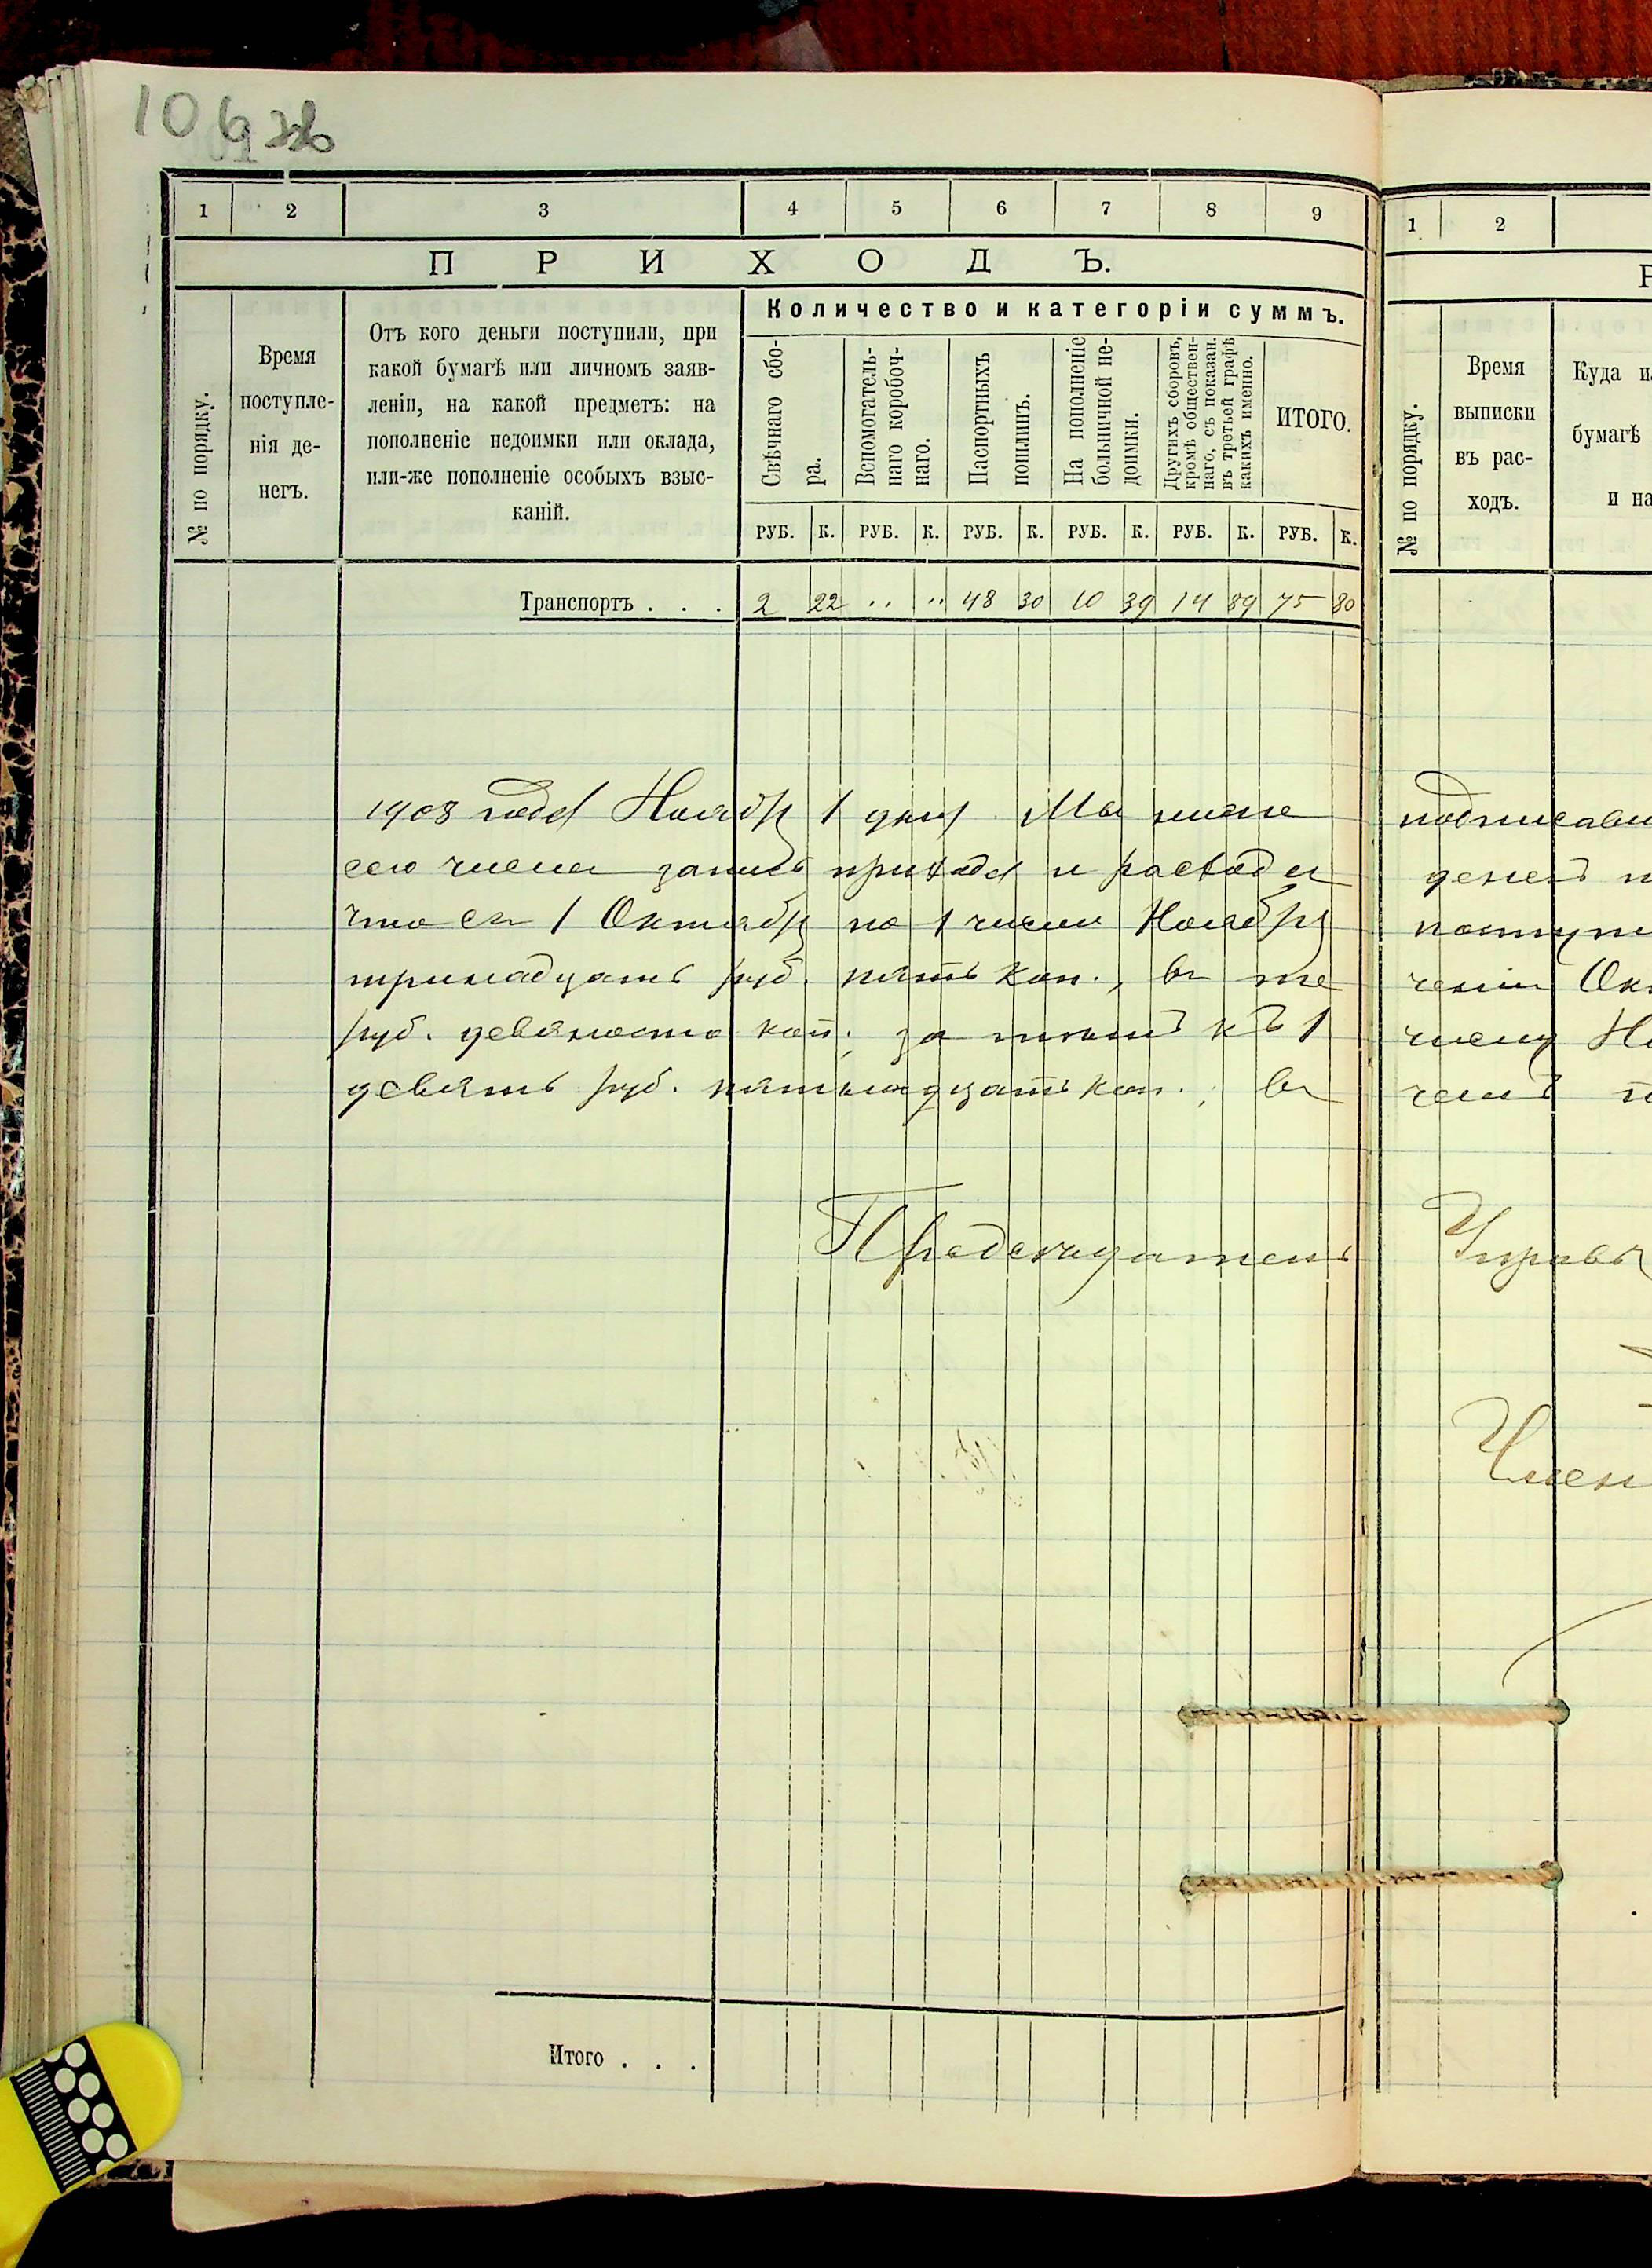 106 об
1 2 3 4 5 6 7 8 9
ПРИХОДЪ.
№ по порядку.
Время
поступле-
нія де-
негъ.
Отъ кого деньги поступили, при
какой бумагѣ или личномъ заяв-
леніи, на какой предметъ: на
пополненіе недоимки или оклада,
или-же пополненіе особыхъ взыс-
каній.
Количество и категоріи суммъ.
Свѣчнаго сбо-
ра.
Вспомогатель-
наго коробоч-
наго.
Паспортныхъ
пошлинъ.
На пополненіе
больничной не-
доимки.
Другихъ сборовъ,
кромѣ обществен-
наго, съ показан.
въ третьей графѣ
какихъ именно.
ИТОГО.
РУБ. К. РУБ. К. РУБ. К. РУБ. К. РУБ. К. РУБ. К.
Транспортъ . . . 2 22 " " 48 30 10 39 14 89 75 80
1908 года Ноября 1 дня Мы ниже
сего числа запись прихода и расхода
что съ 1 Октября по 1 число Ноября
тринадцать руб. пять коп., въ те
руб. девяносто коп. за тѣмъ къ 1
девять руб. пятнадцать коп., въ
Предсѣдатель
Итого . . .
1 2
№ по порядку.
Время
выписки
въ рас-
ходъ.
Куда
бумагѣ
и на
подписавш
денегъ
поступи
ченіи Ок
числу Но
чемъ
Управы
Член